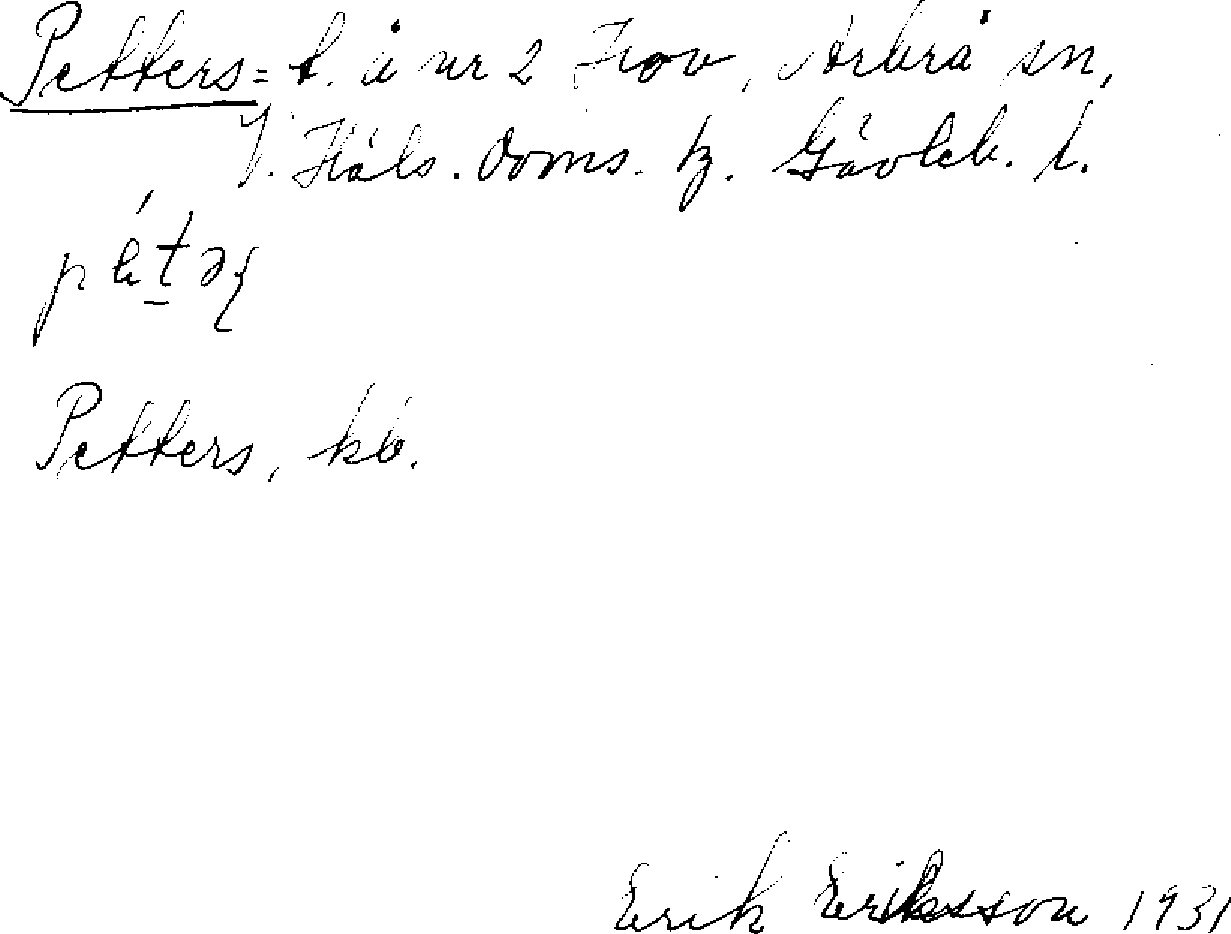 Petters = t. å nr 2 Hov, Arbrå sn,
V. Häls. doms. tz. Gävleb. l.
pétəʂ
Petters, kb.
Erik Eriksson 1931